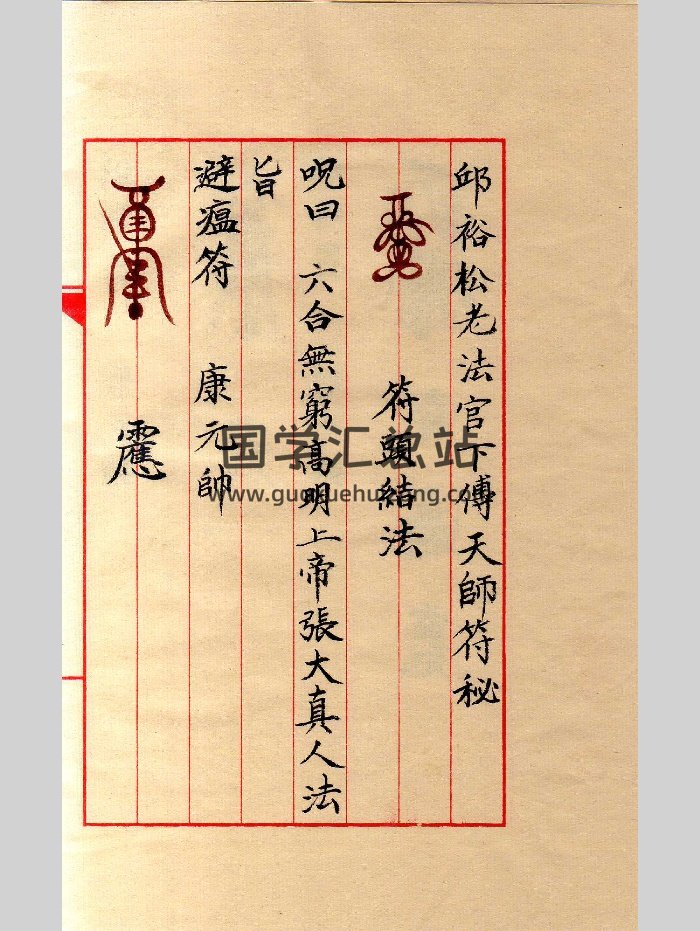 邱裕松老法官下傅天師符秘
符頭結法
呪曰 六合無窮高明上帝張大真人法
旨
避瘟符 康元帥
國学汇总站
www.guoxuehuizong.com